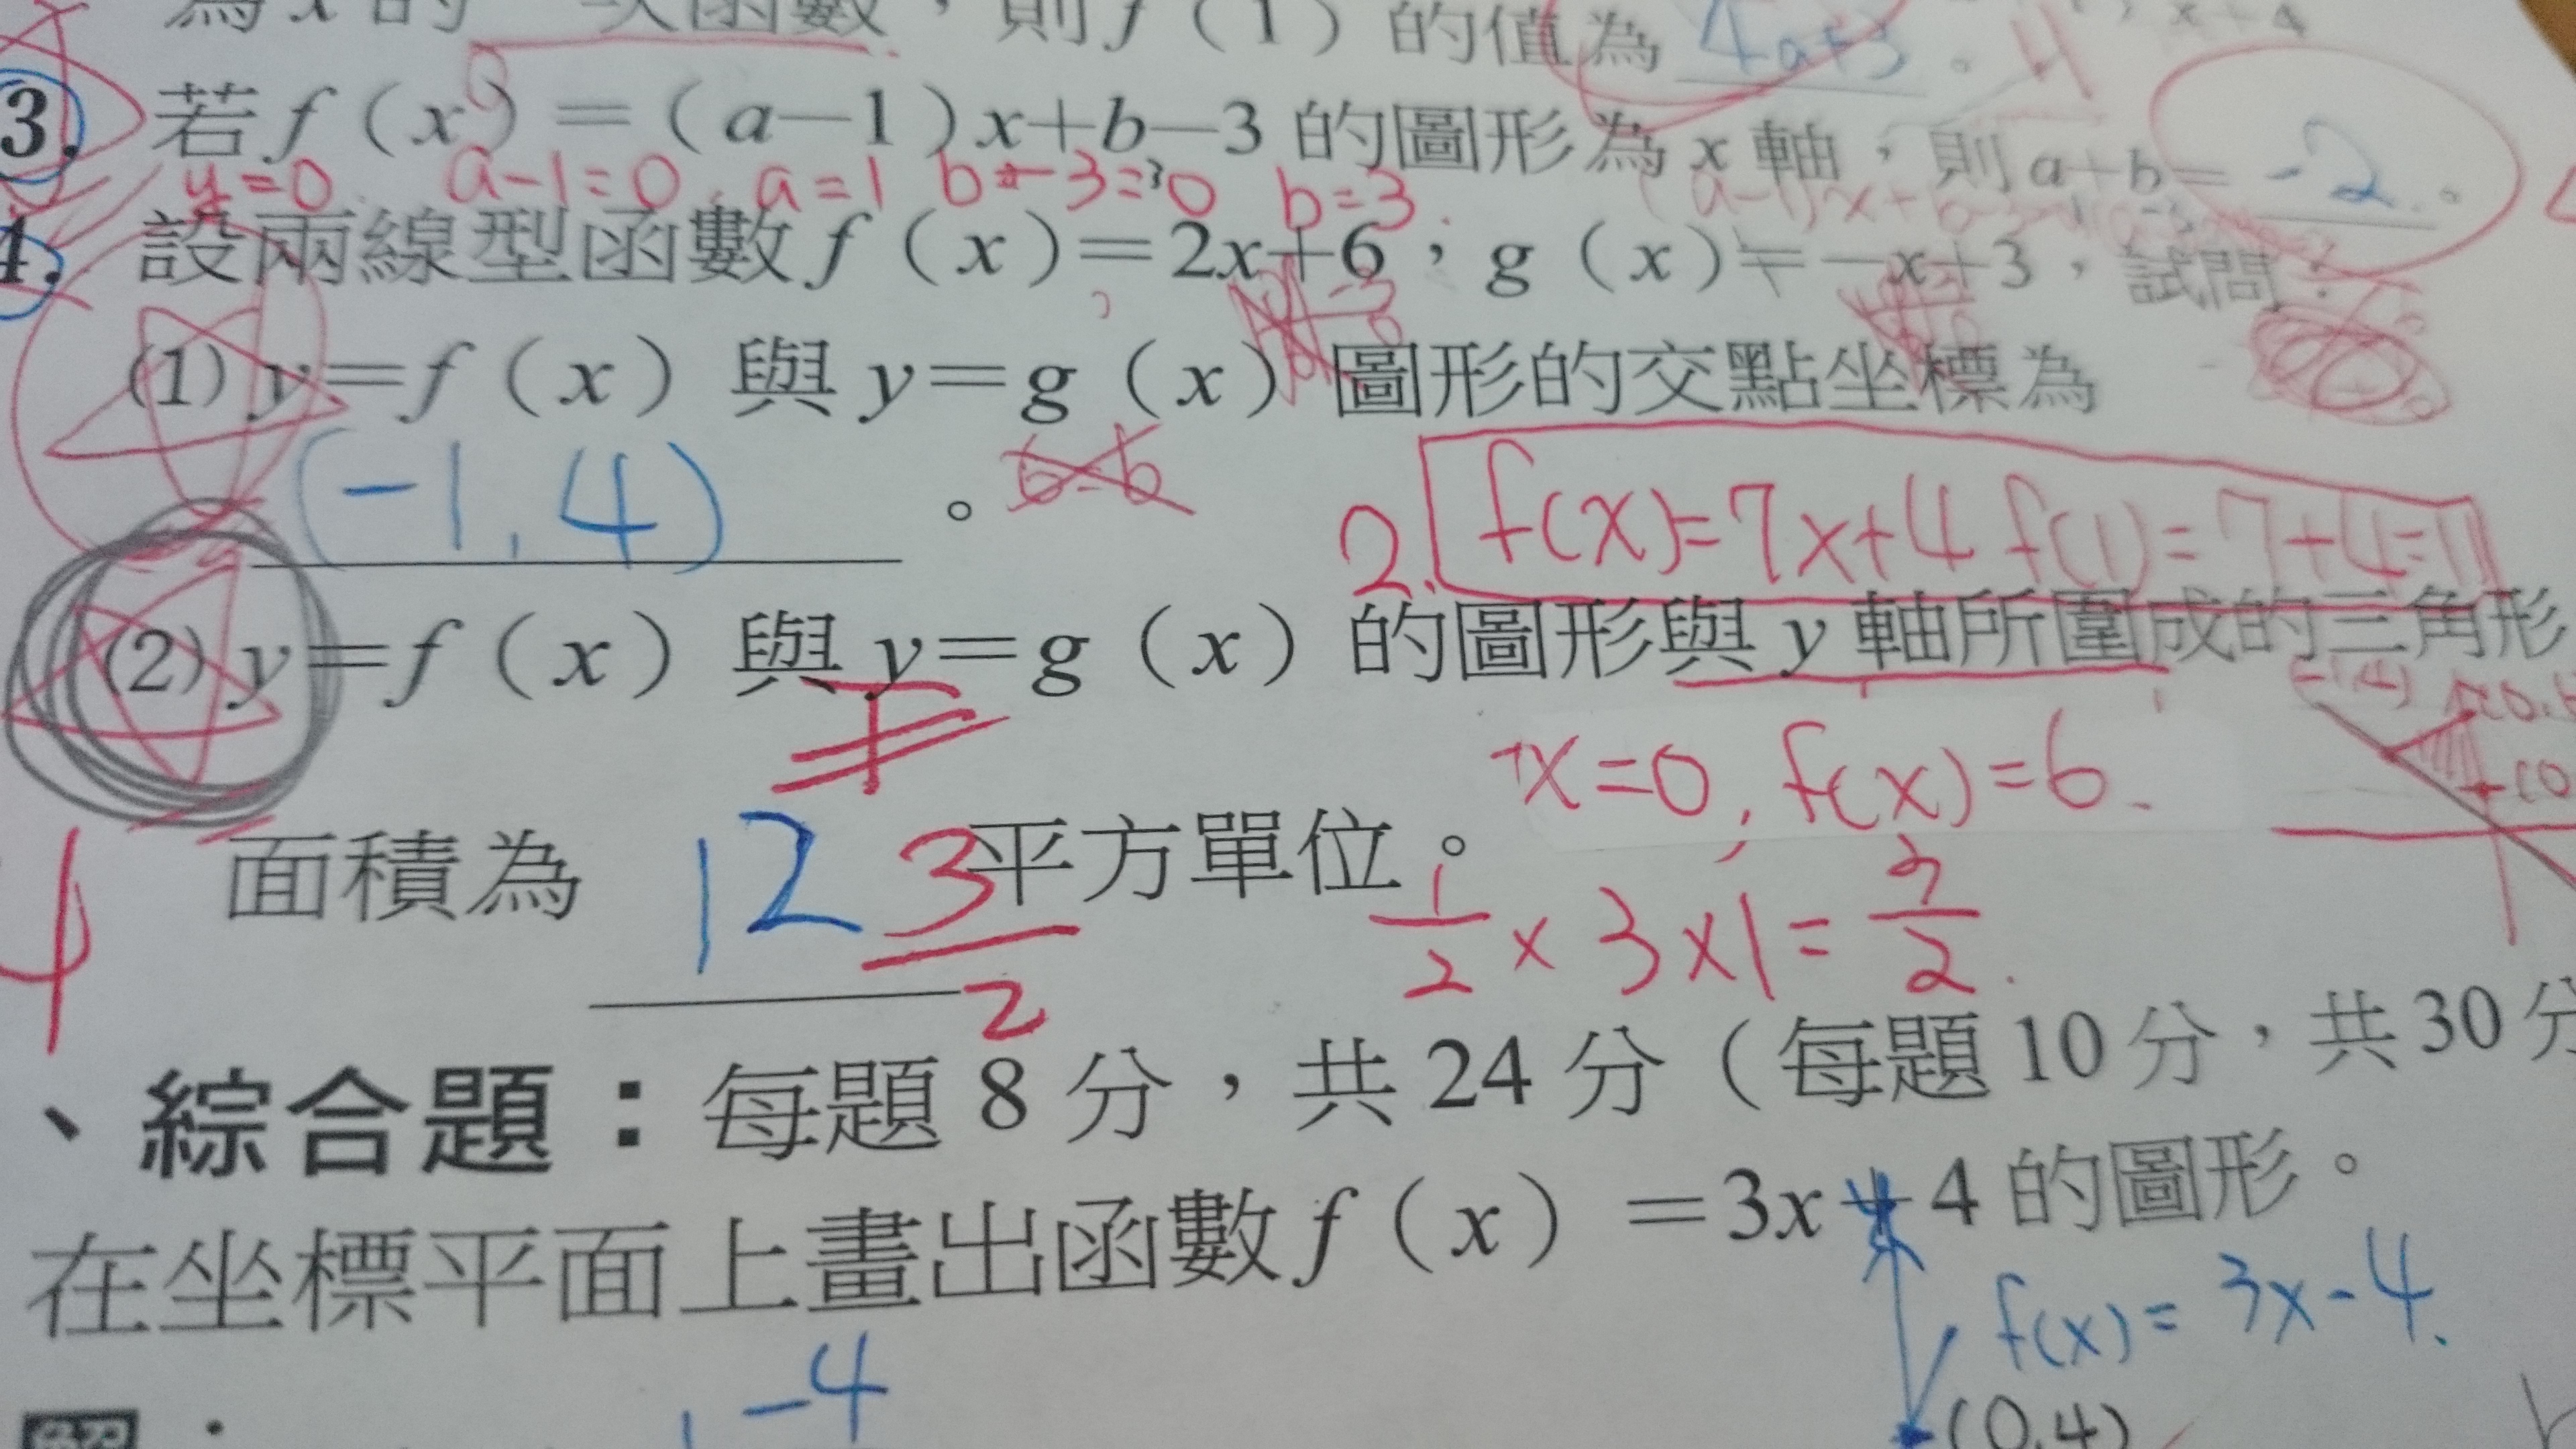 為 x 的一次函數，則 f（1）的值為 4a+3。
3. 若 f（x）=（a－1）x+b－3 的圖形為 x 軸，則 a+b= -2。
y=0. a-1=0, a=1 b-3=0 b=3.
4. 設兩線型函數 f（x）=2x+6，g（x）=－x+3，試問：
(1) y=f（x）與 y=g（x）圖形的交點坐標為
(-1, 4)。
2. f(x)=7x+4 f(1)=7+4=11
(2) y=f（x）與 y=g（x）的圖形與 y 軸所圍成的三角形
x=0, f(x)=6.
面積為 12 3/2 平方單位。
1/2 × 3 × 1 = 3/2.
、綜合題：每題 8 分，共 24 分（每題 10 分，共 30 分
在坐標平面上畫出函數 f（x）=3x+4 的圖形。
f(x)= 3x-4.
-4
(0,4)